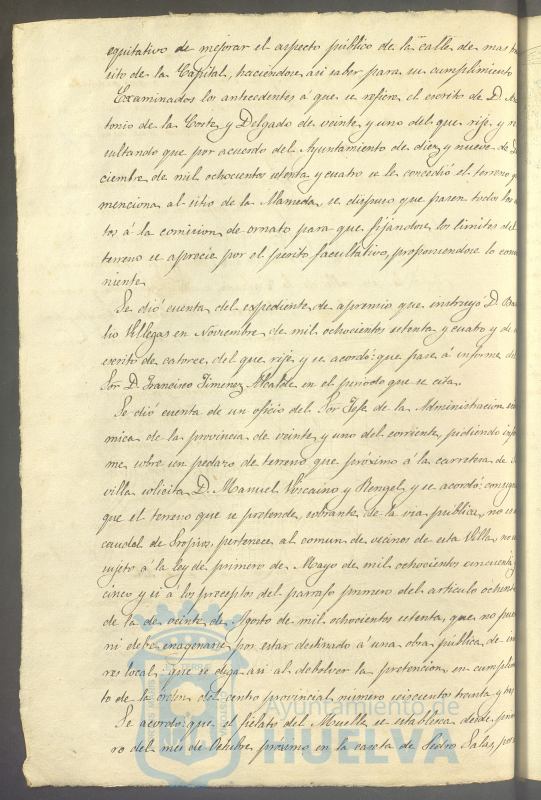 equitativo de mejorar el aspecto público de la calle de mas
sito de la Capital, haciendose asi saber para su cumplimiento
Examinados los antecedentes á que se refiere el escrito de D.
tonio de la Corte y Delgado de veinte y uno del que rije, y
sultando que por acuerdo del Ayuntamiento de diez y nueve de
ciembre de mil ochocientos setenta y cuatro se le concedió el terreno
menciona al sitio de la Alameda, se dispuso que pasen todos los
tos á la comision de ornato para que fijandose los limites del
terreno se aprecie por el perito facultativo, proponiendose lo conve
niente.
Se dió cuenta del espediente de apremio que instruyó D. Basi
lio Villegas en Noviembre de mil ochocientos setenta y cuatro y de
escrito de catorce del que rije y se acordó: que pase á informe del
Sor. D. Francisco Jimenez, Alcalde en el periodo que se cita.
Se dió cuenta de un oficio del Sor. Jefe de la Administracion
mica de la provincia de veinte y uno del corriente, pidiendo infor
me sobre un pedazo de terreno que próximo á la carretera de
villa solicita D. Manuel Viscaino y Rengel y se acordó: consigna
que el terreno que se pretende, sobrante de la via publica, no es
caudal de Propios, pertenece al comun de vecinos de esta Villa, no
sujeto á la ley de primero de Mayo de mil ochocientos cincuenta y
cinco y si á los preceptos del parrafo primero del articulo ochenta
de la de veinte de Agosto de mil ochocientos setenta, que no pue
ni debe enagenarse por estar destinado á una obra publica de
res local, que se diga asi al debolver la pretencion en cumplimien
to de la orden del centro provincial numero seiscientos treinta y
Se acordó: que el fielato del Muelle se establezca desde prime
ro del mes de Octubre próximo en la caseta de Pedro Salas, por
Ayuntamiento de
HUELVA